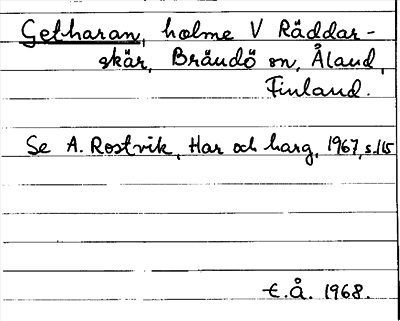 Getharan, holme V Räddar-
skär, Brändö sn, Åland,
Finland.
Se A. Rostvik, Har och harg, 1967, s.115
E.Å. 1968.